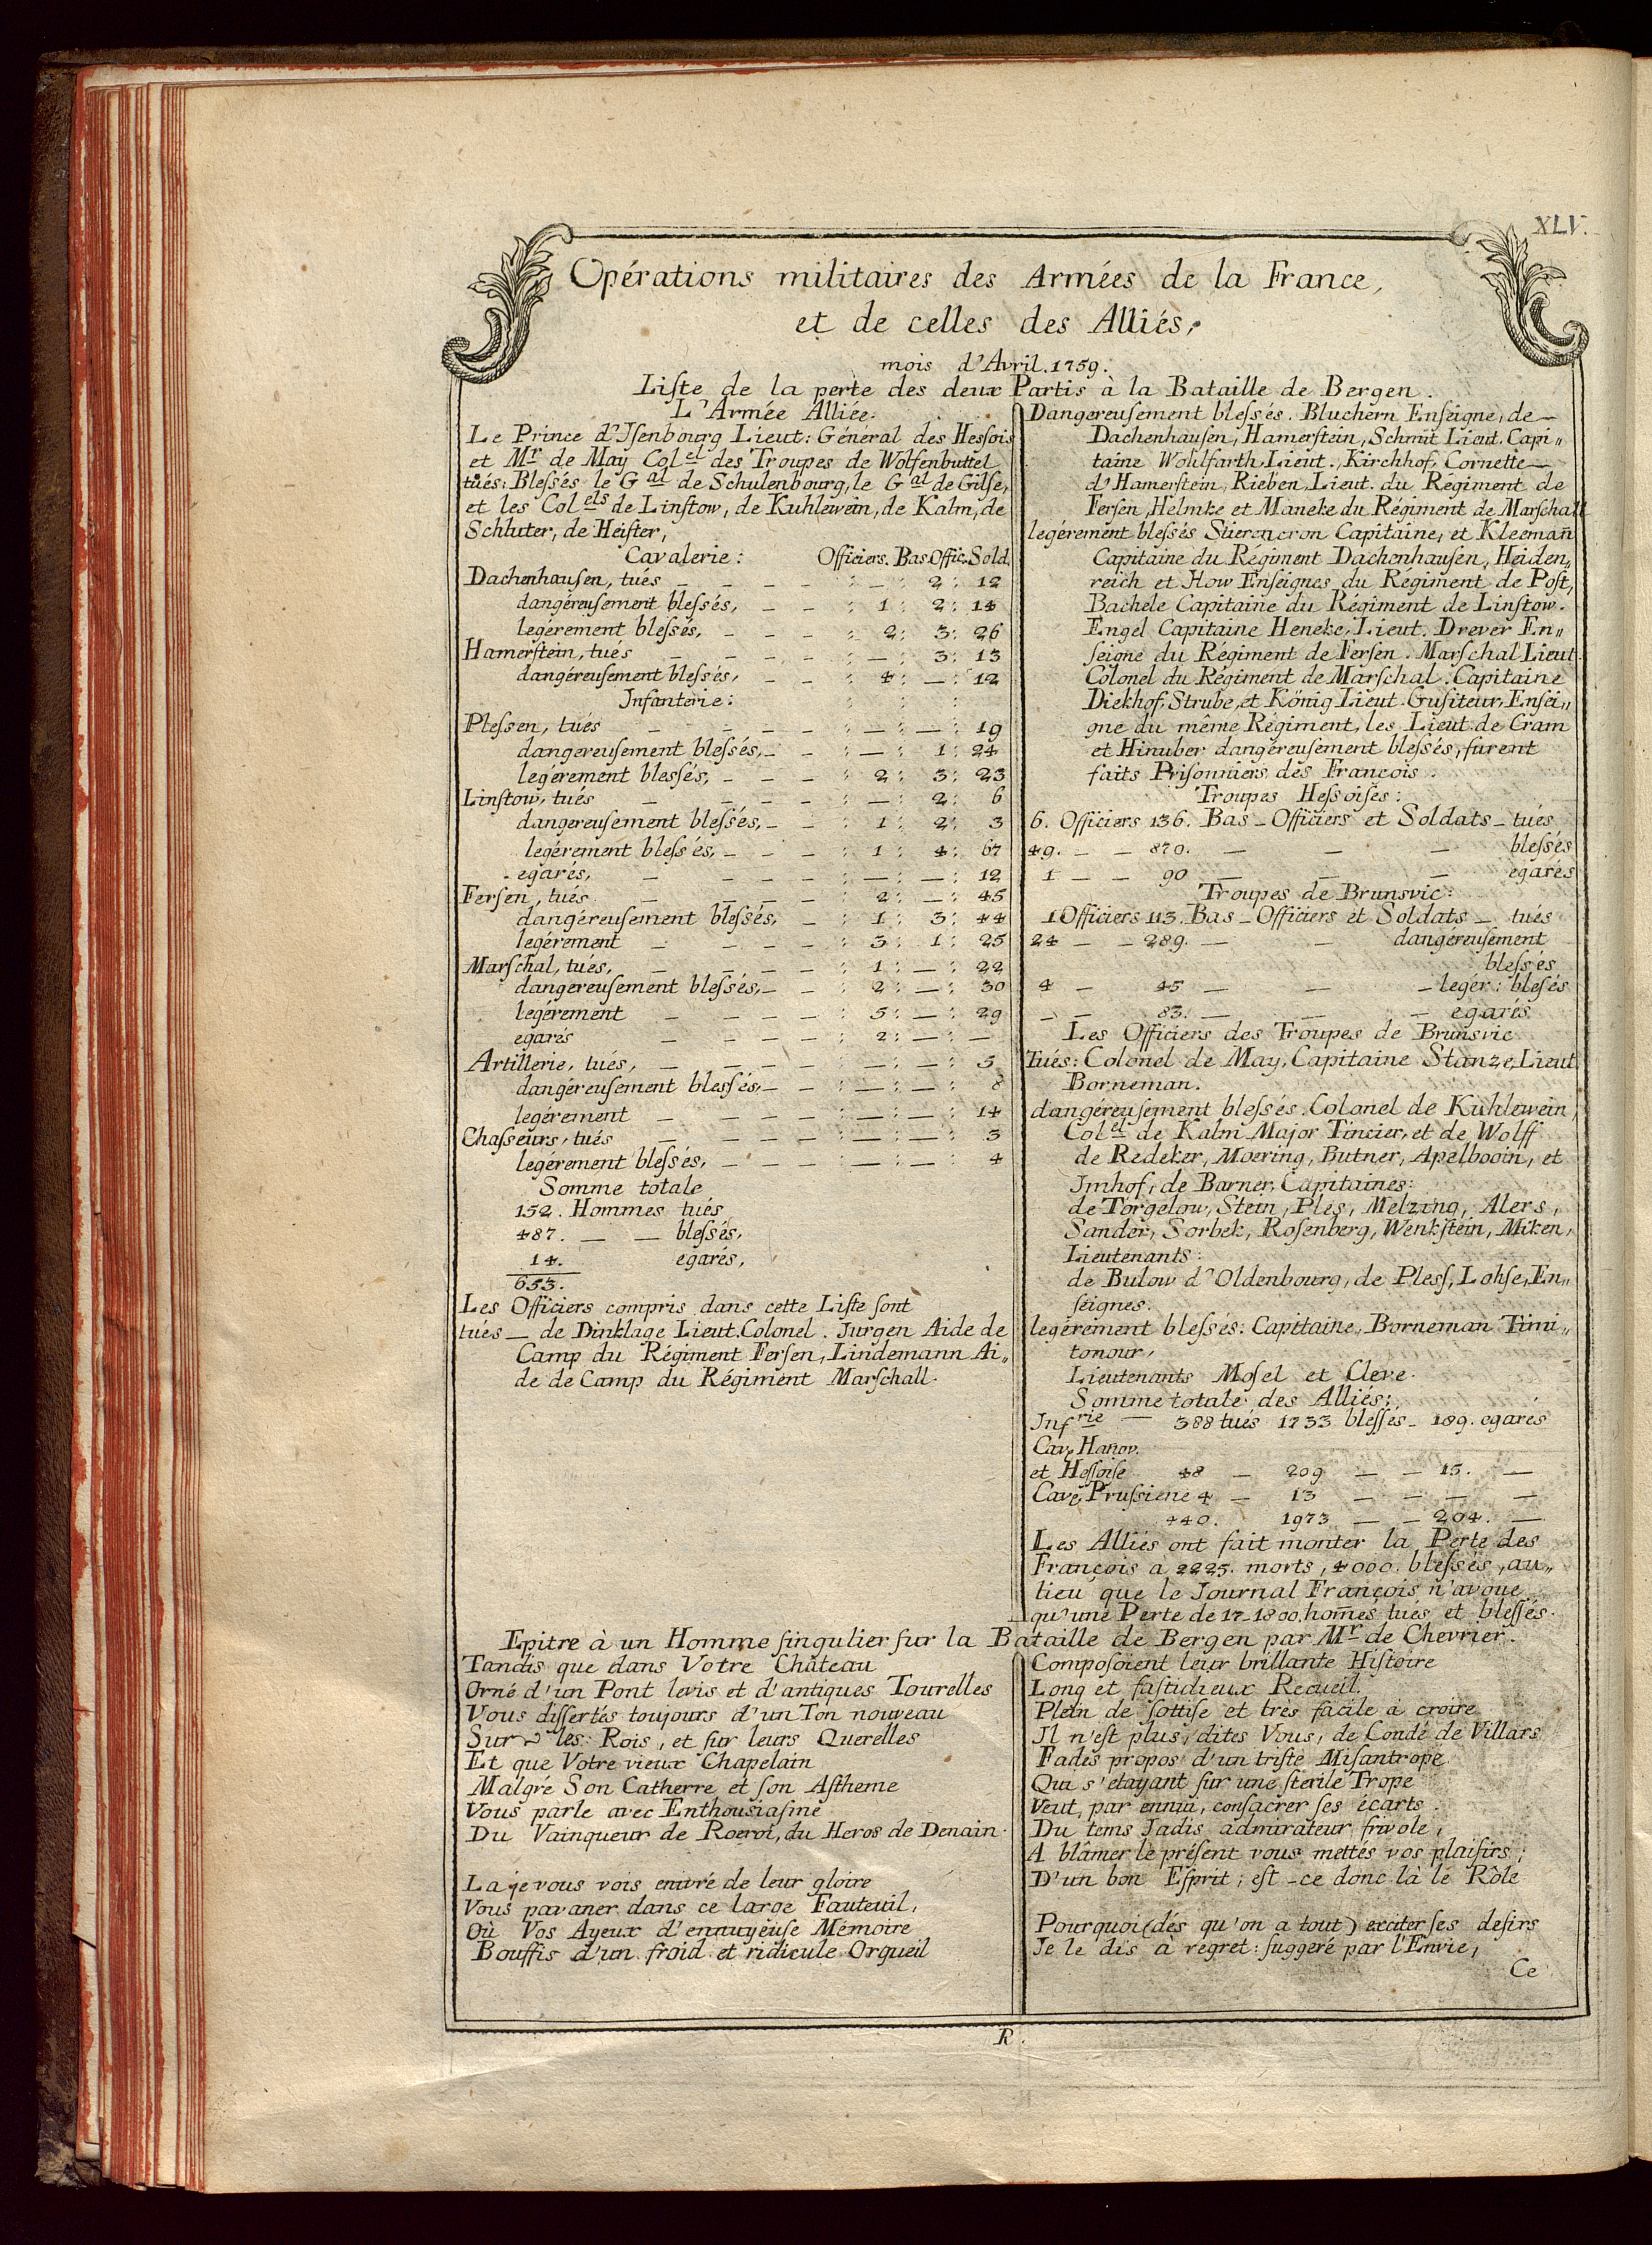 XLV.
Opérations militaires des Armées de la France,
et de celles des Alliés,
mois d'Avril. 1759.
Liste de la perte des deux Partis à la Bataille de Bergen.
L'Armée Alliée.
Le Prince d'Isenbourg Lieut: Géneral des Hessois
et Mr de May Colel des Troupes de Wolfenbuttel
tués: Blessés le Gal de Schulenbourg, le Gal de Gilse,
et les Colels de Linstow, de Kuhlewein, de Kalm, de
Schluter, de Heister,
Cavalerie: Officiers. Bas Offic. Sold.
Dachenhausen, tués — — — — : — : 2 : 12
dangéreusement blessés, — — : 1 : 2 : 14
legérement blessés, — — — : 2 : 3 : 26
Hamerstein, tués — — — — : — : 3 : 13
dangéreusement blessés, — — : 4 : — : 12
Infanterie:
Plessen, tués — — — — : — : — : 19
dangereusement blessés, — — : — : 1 : 24
legérement blessés, — — — : 2 : 3 : 23
Linstow, tués — — — — : — : 2 : 6
dangereusement blessés, — — : 1 : 2 : 3
legérement blessés, — — — : 1 : 4 : 67
egarés, — — — — : — : — : 12
Fersen, tués — — — — : 2 : — : 45
dangéreusement blessés, — : 1 : 3 : 44
legérement — — — — : 3 : 1 : 25
Marschal, tués, — — — — : 1 : — : 22
dangereusement blessés, — — : 2 : — : 30
legérement — — — — : 5 : — : 29
egarés — — — — : 2 : — : —
Artillerie, tués, — — — — : — : — : 5
dangéreusement blessés, — — : — : — : 8
legérement — — — — : — : — : 14
Chasseurs, tués — — — — : — : — : 3
legérement blessés, — — — — : — : — : 4
Somme totale
152. Hommes tués
487. — — blessés,
14. egarés,
653.
Les Officiers compris dans cette Liste sont
tués — de Dinklage Lieut. Colonel. Jurgen Aide de
Camp du Régiment Fersen, Lindemann Ai„
de de Camp du Régiment Marschall.
Dangereusement blessés. Bluchern Enseigne, de —
Dachenhausen, Hamerstein, Schmit Lieut. Capi„
taine Wohlfarth, Lieut., Kirchhof, Cornette —
d'Hamerstein, Rieben, Lieut. du Régiment de
Fersen, Helmke et Maneke du Régiment de Marschall
legérement blessés Stierencron Capitaine, et Kleemañ
Capitaine du Régiment Dachenhausen, Heiden„
reich et How Enseignes du Régiment de Post,
Bachele Capitaine du Régiment de Linstow.
Engel Capitaine Heneke, Lieut. Drever En„
seigne du Régiment de Fersen. Marschal Lieut.
Colonel du Régiment de Marschal. Capitaine
Diekhof, Strube, et König Lieut. Gusiteur, Ensei„
gne du même Régiment, les Lieut. de Cram
et Hinuber dangéreusement blessés, furent
faits Prisonniers des François.
Troupes Hessoises:
6. Officiers 136. Bas - Officiers et Soldats - tués
49. — — 870. — — — blessés
1 — — 90 — — — egarés
Troupes de Brunsvic:
1 Officiers 113. Bas - Officiers et Soldats — tués
24 — — 289. — — dangéreusement
blessés
4 — 45 — — — legér: blesés
— — 83. — — — egarés
Les Officiers des Troupes de Brunsvic
Tués: Colonel de May, Capitaine Stanze, Lieut
Borneman.
dangéreusement blessés. Colonel de Kuhlewein,
Colel de Kalm Major Tincier, et de Wolff
de Redeker, Moering, Butner, Apelbooin, et
Imhof, de Barner, Capitaines:
de Torgelow, Stein, Ples, Melzing, Alers,
Sander, Sorbek, Rosenberg, Wenkstein, Miken,
Lieutenants:
de Bulow d'Oldenbourg, de Pless, Lohse, En„
seignes.
legérement blessés: Capitaine, Borneman Timi„
tonour,
Lieutenants Mosel et Cleve.
Somme totale des Alliés:
Infrie — 388 tués 1733 blessés - 189. egarés
Cav. Hanov.
et Hessoise 48 — 209 — — 15. —
Cav. Prussiene 4 — 13 — — — —
440. 1973 — — 204. —
Les Alliés ont fait monter la Perte des
François à 2225. morts, 4000. blessés, au„
lieu que le Journal François n'avoue
qu'une Perte de 17-1800. hom̃es tués et blessés.
Epitre à un Homme singulier sur la Bataille de Bergen par Mr de Chevrier.
Tandis que dans Votre Château
Orné d'un Pont levis et d'antiques Tourelles
Vous dissertés toujours d'un Ton nouveau
Sur les Rois, et sur leurs Querelles
Et que Votre vieux Chapelain
Malgré Son Catherre et son Astheme
Vous parle avec Enthousiasme
Du Vainqueur de Rocroi, du Heros de Denain.
La je vous vois enivré de leur gloire
Vous pavaner dans ce large Fauteuil,
Où Vos Ayeux d'ennuyéuse Mémoire
Bouffis d'un froid et ridicule Orgueil
Composoient leur brillante Histoire
Long et fastidieux Recueil.
Plein de sottise et tres facile à croire
Il n'est plus, dites Vous, de Condé de Villars
Fades propos d'un triste Misantrope
Qui s'etayant sur une sterile Trope
Veut, par ennui, consacrer ses écarts.
Du tems Jadis admirateur frivole,
A blâmer le présent vous mettés vos plaisirs;
D'un bon Esprit; est-ce donc là le Rôle
Pourquoi (dés qu'on a tout) exciter ses desirs
Je le dis à regret: suggeré par l'Envie,
Ce
R.